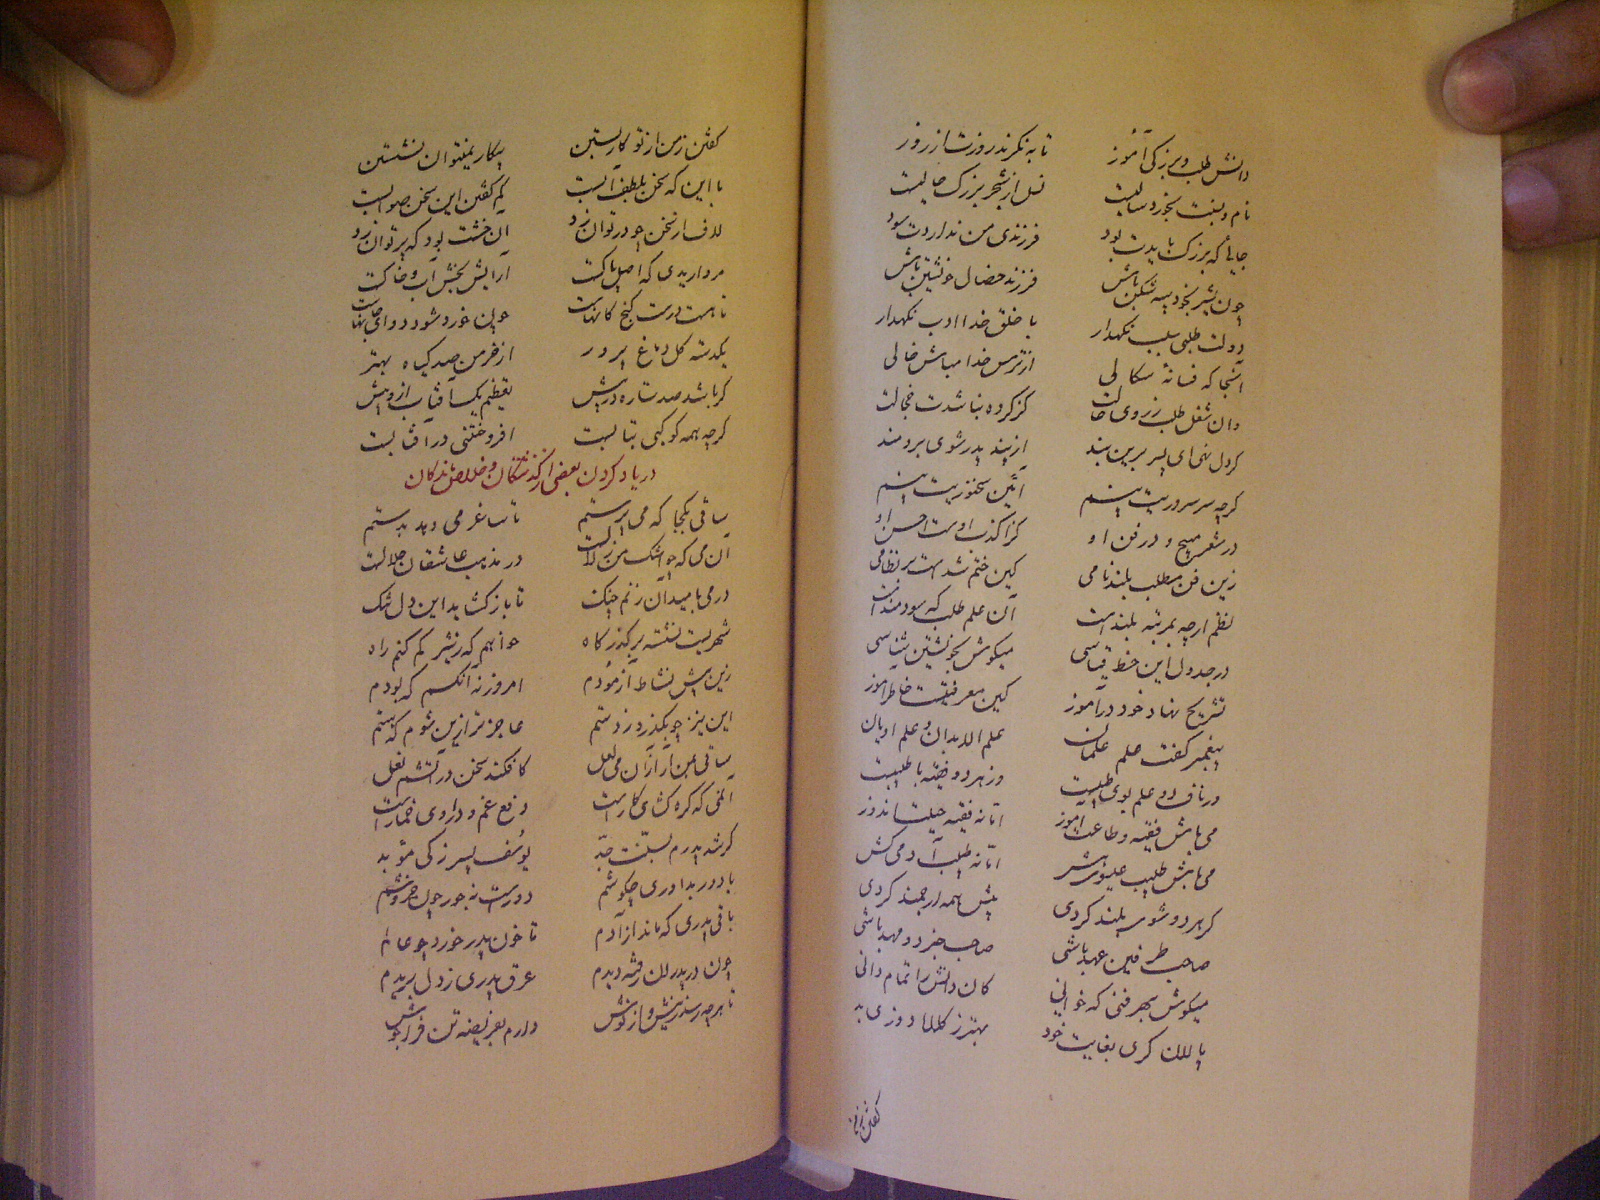 دانش طلب و بزرگی آموز تا به نگرند روزت از روز
نام و نسبت بخورد سالیست نسل از شجر بزرگ خالیست
جایی که بزرگ بایدت بود فرزندی من نداردت سود
چون شیر بخود سپه شکن باش فرزند خصال خویشتن باش
دولت طلبی سبب نگهدار با خلق خدا ادب نگهدار
آنجا که فسانه سکالی از ترس خدا مباش خالی
وان شغل طلب ز روی حالت کز کرده نباشدت خجالت
گر دل نهی ای پسر برین پند از پند پدر شوی برومند
گرچه سر سروریت بینم آئین سخنوریت بینم
در شعر مپیچ و در فن او کز اکذب اوست احسن او
زین فن مطلب بلند نامی کین ختم شد است بر نظامی
نظم ار چه بمرتبه بلند است آن علم طلب که سودمند است
در جدول این خط قیاسی میکوش بخویشتن شناسی
تشریح نهاد خود درآموز کین معرفتیست خاطر افروز
پیغمبر گفت علم علمان علم الابدان و علم ادیان
در ناف دو علم بوی طیبست وز هر دو فقیه با طبیبست
می باش فقیه و طاعت آموز اما نه فقیه حیلت اندوز
می باش طبیب عیسوی هش اما نه طبیب آدمی کش
گر هر دو شوی بلند گردی پیش همه ارجمند گردی
صاحب طرفین عهد باشی صاحب خبر دو مهد باشی
میکوش بهر فنی که خوانی کان دانش را تمام دانی
پالان گری بغایت خود بهتر ز کلاه دوزی بد
گفتن ز من
گفتن ز من از تو کار بستن بیکار نمیتوان نشستن
با این که سخن بلطف آبست کم گفتن این سخن صوابست
لاف از سخن چو در توان زد آن خشت بود که پر توان زد
مرواریدی که اصل پاکست آرایش بخش آب و خاکست
تا هست درست گنج کانهاست چون خورد شود دوای جانهاست
یکدسته گل دماغ پرور از خرمن صد گیاه بهتر
گر باشد صد ستاره در پیش تعظیم یک آفتاب ازو بیش
گرچه همه کوکبی بتابست افروختنی در آفتابست
در یاد کردن بعضی از گذشتگان و
ساقی بکجا که می پرستم تا ساغر می دهد بدستم
آن می که چو اشک من زلالست در مذهب عاشقان حلالست
در می بامید آن زنم چنگ تا باز گشاید این دل تنگ
شیریست نشسته بر گذرگاه خواهم که ز شیر گم کنم راه
زین پیش نشاط آزمودم امروز نه آنکسم که بودم
این نیز چو بگذرد ز دستم عاجز تر ازین شوم که هستم
ساقی بمن آر از آن می لعل کافکند سخن در آتشم نعل
آن می که گره گشای کار است دفع غم و داروی خمار است
گر شد پدرم بسنت جد یوسف پسر زکی مؤید
با دور بداوری چه کوشم دورست نه جور چون خروشم
باقی پدری که ماند از آدم تا خون پدر خورد چو عالم
چون در پدران رفته دیدم عرق پدری ز دل بریدم
تا هر چه رسد ز نیش و از نوش دارم بفریضه تن فراموش